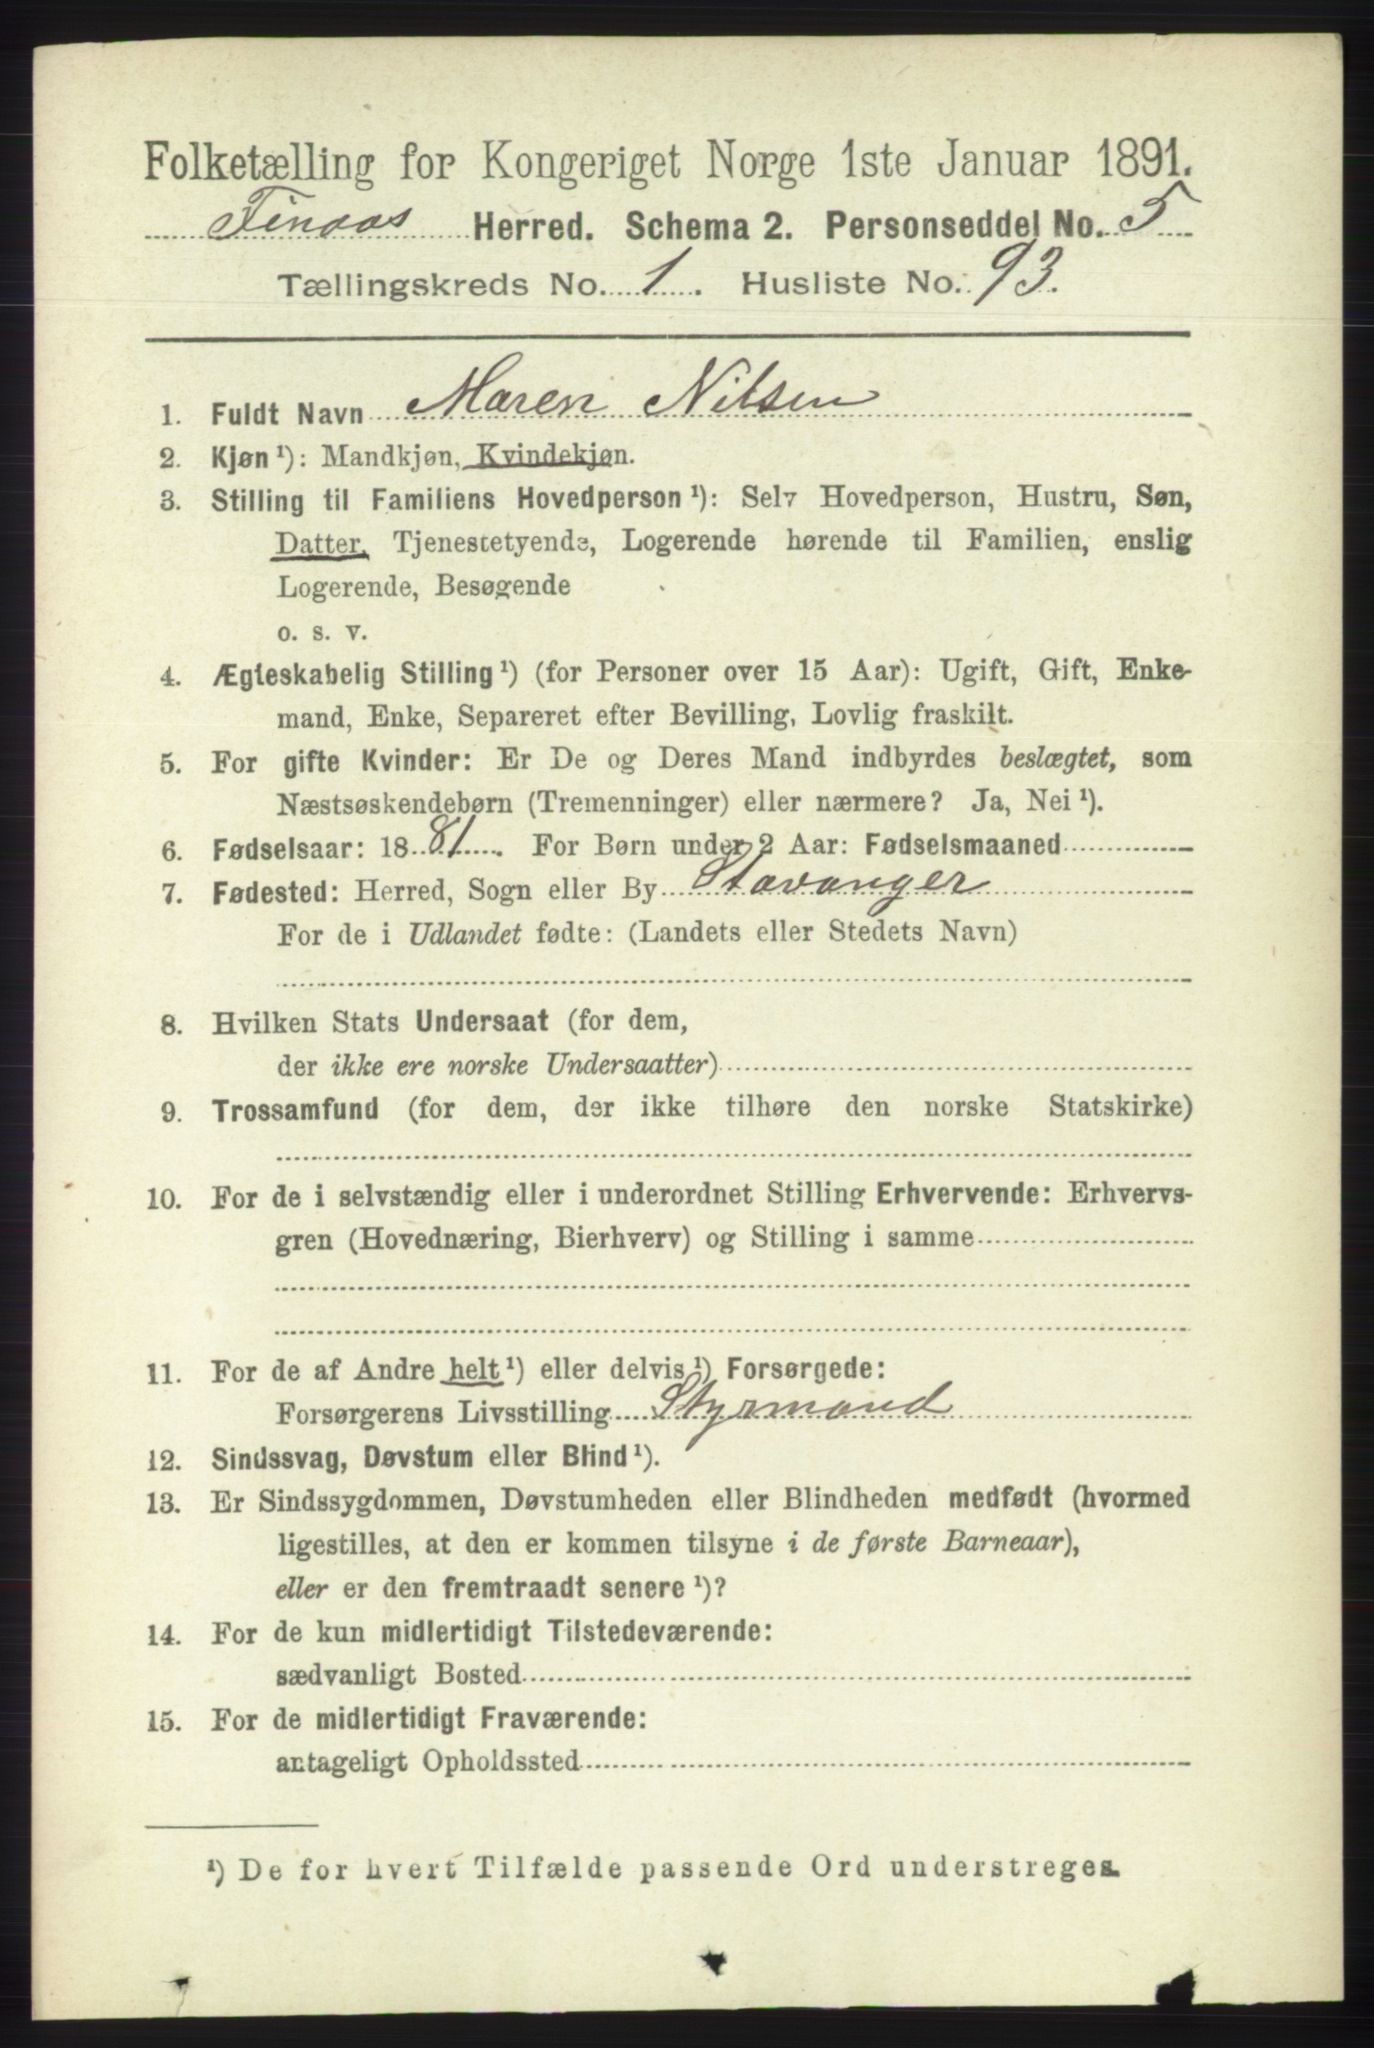 Folketælling for Kongeriget Norge 1ste Januar 1891.
Finaas Herred. Schema 2. Personseddel No. 5
Tællingskreds No. 1. Husliste No. 93.
1. Fuldt Navn Maren Nilsen
2. Kjøn ¹): Mandkjøn, Kvindekjøn.
3. Stilling til Familiens Hovedperson ¹): Selv Hovedperson, Hustru, Søn,
Datter, Tjenestetyende, Logerende hørende til Familien, enslig
Logerende, Besøgende
o. s. v.
4. Ægteskabelig Stilling ¹) (for Personer over 15 Aar): Ugift, Gift, Enke-
mand, Enke, Separeret efter Bevilling, Lovlig fraskilt.
5. For gifte Kvinder: Er De og Deres Mand indbyrdes beslægtet, som
Næstsøskendebørn (Tremenninger) eller nærmere? Ja, Nei ¹).
6. Fødselsaar: 1881. For Børn under 2 Aar: Fødselsmaaned
7. Fødested: Herred, Sogn eller By Stavanger
For de i Udlandet fødte: (Landets eller Stedets Navn)
8. Hvilken Stats Undersaat (for dem,
der ikke ere norske Undersaatter)
9. Trossamfund (for dem, der ikke tilhøre den norske Statskirke)
10. For de i selvstændig eller i underordnet Stilling Erhvervende: Erhvervs-
gren (Hovednæring, Bierhverv) og Stilling i samme
11. For de af Andre helt ¹) eller delvis ¹) Forsørgede:
Forsørgerens Livsstilling Styrmand
12. Sindssvag, Døvstum eller Blind ¹).
13. Er Sindssygdommen, Døvstumheden eller Blindheden medfødt (hvormed
ligestilles, at den er kommen tilsyne i de første Barneaar),
eller er den fremtraadt senere ¹)?
14. For de kun midlertidigt Tilstedeværende:
sædvanligt Bosted
15. For de midlertidigt Fraværende:
antageligt Opholdssted
¹) De for hvert Tilfælde passende Ord understreges.